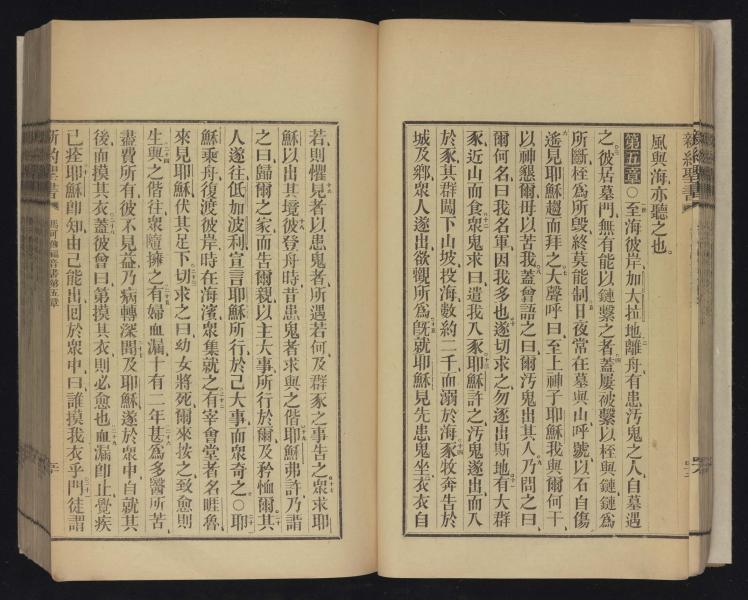 風與海亦聽之也
第五章○至海彼岸加大拉地離舟有患汚鬼之人自墓遇
之彼居墓門無有能以鏈繫之者蓋屢被繫以桎與鏈鏈爲
所斷桎爲所毀終莫能制日夜常在墓與山呼號以石自傷
遙見耶穌趨而拜之大聲呼曰至上神子耶穌我與爾何干
以神懇爾毋以苦我蓋曾語之曰爾汚鬼出其人乃問之曰
爾何名曰我名軍因我多也遂切求之勿逐出斯地有大群
豕近山而食衆鬼求曰遣我入豕耶穌許之汚鬼遂出而入
於豕其群闖下山坡投海數約二千而溺於海豕牧奔告於
城及鄕衆人遂出欲觀所爲旣就耶穌見先患鬼坐衣衣自
若則懼見者以患鬼者所遇若何及群豕之事告之衆求耶
穌以出其境彼登舟時昔患鬼者求與之偕耶穌弗許乃謂
之曰歸爾之家而告爾親以主大事所行於爾及矜恤爾其
人遂往低加波利宣言耶穌所行於己大事而衆奇之○耶
穌乘舟復渡彼岸時在海濱衆集就之有宰會堂者名睚魯
來見耶穌伏其足下切求之曰幼女將死爾來按之致愈則
生與之偕往衆隨擁之有婦血漏十有二年甚爲多醫所苦
盡費所有彼不見益乃病轉深聞及耶穌遂於衆中自就其
後而摸其衣蓋彼曾曰第摸其衣則必愈也血漏卽止覺疾
已痊耶穌卽知由己能出囘於衆中曰誰摸我衣乎門徒謂
新約聖書 馬可傳福音書第五章